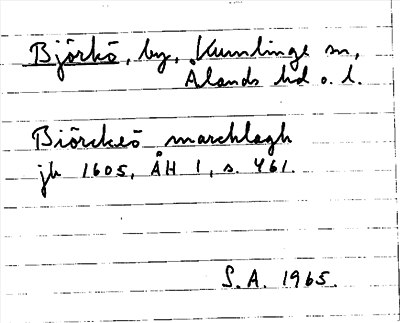 Björkö, by, Kumlinge sn,
Ålands hd o. l.
Biörckeö marchlagh
jb 1605, ÅH 1, s. 461.
S.A. 1965.